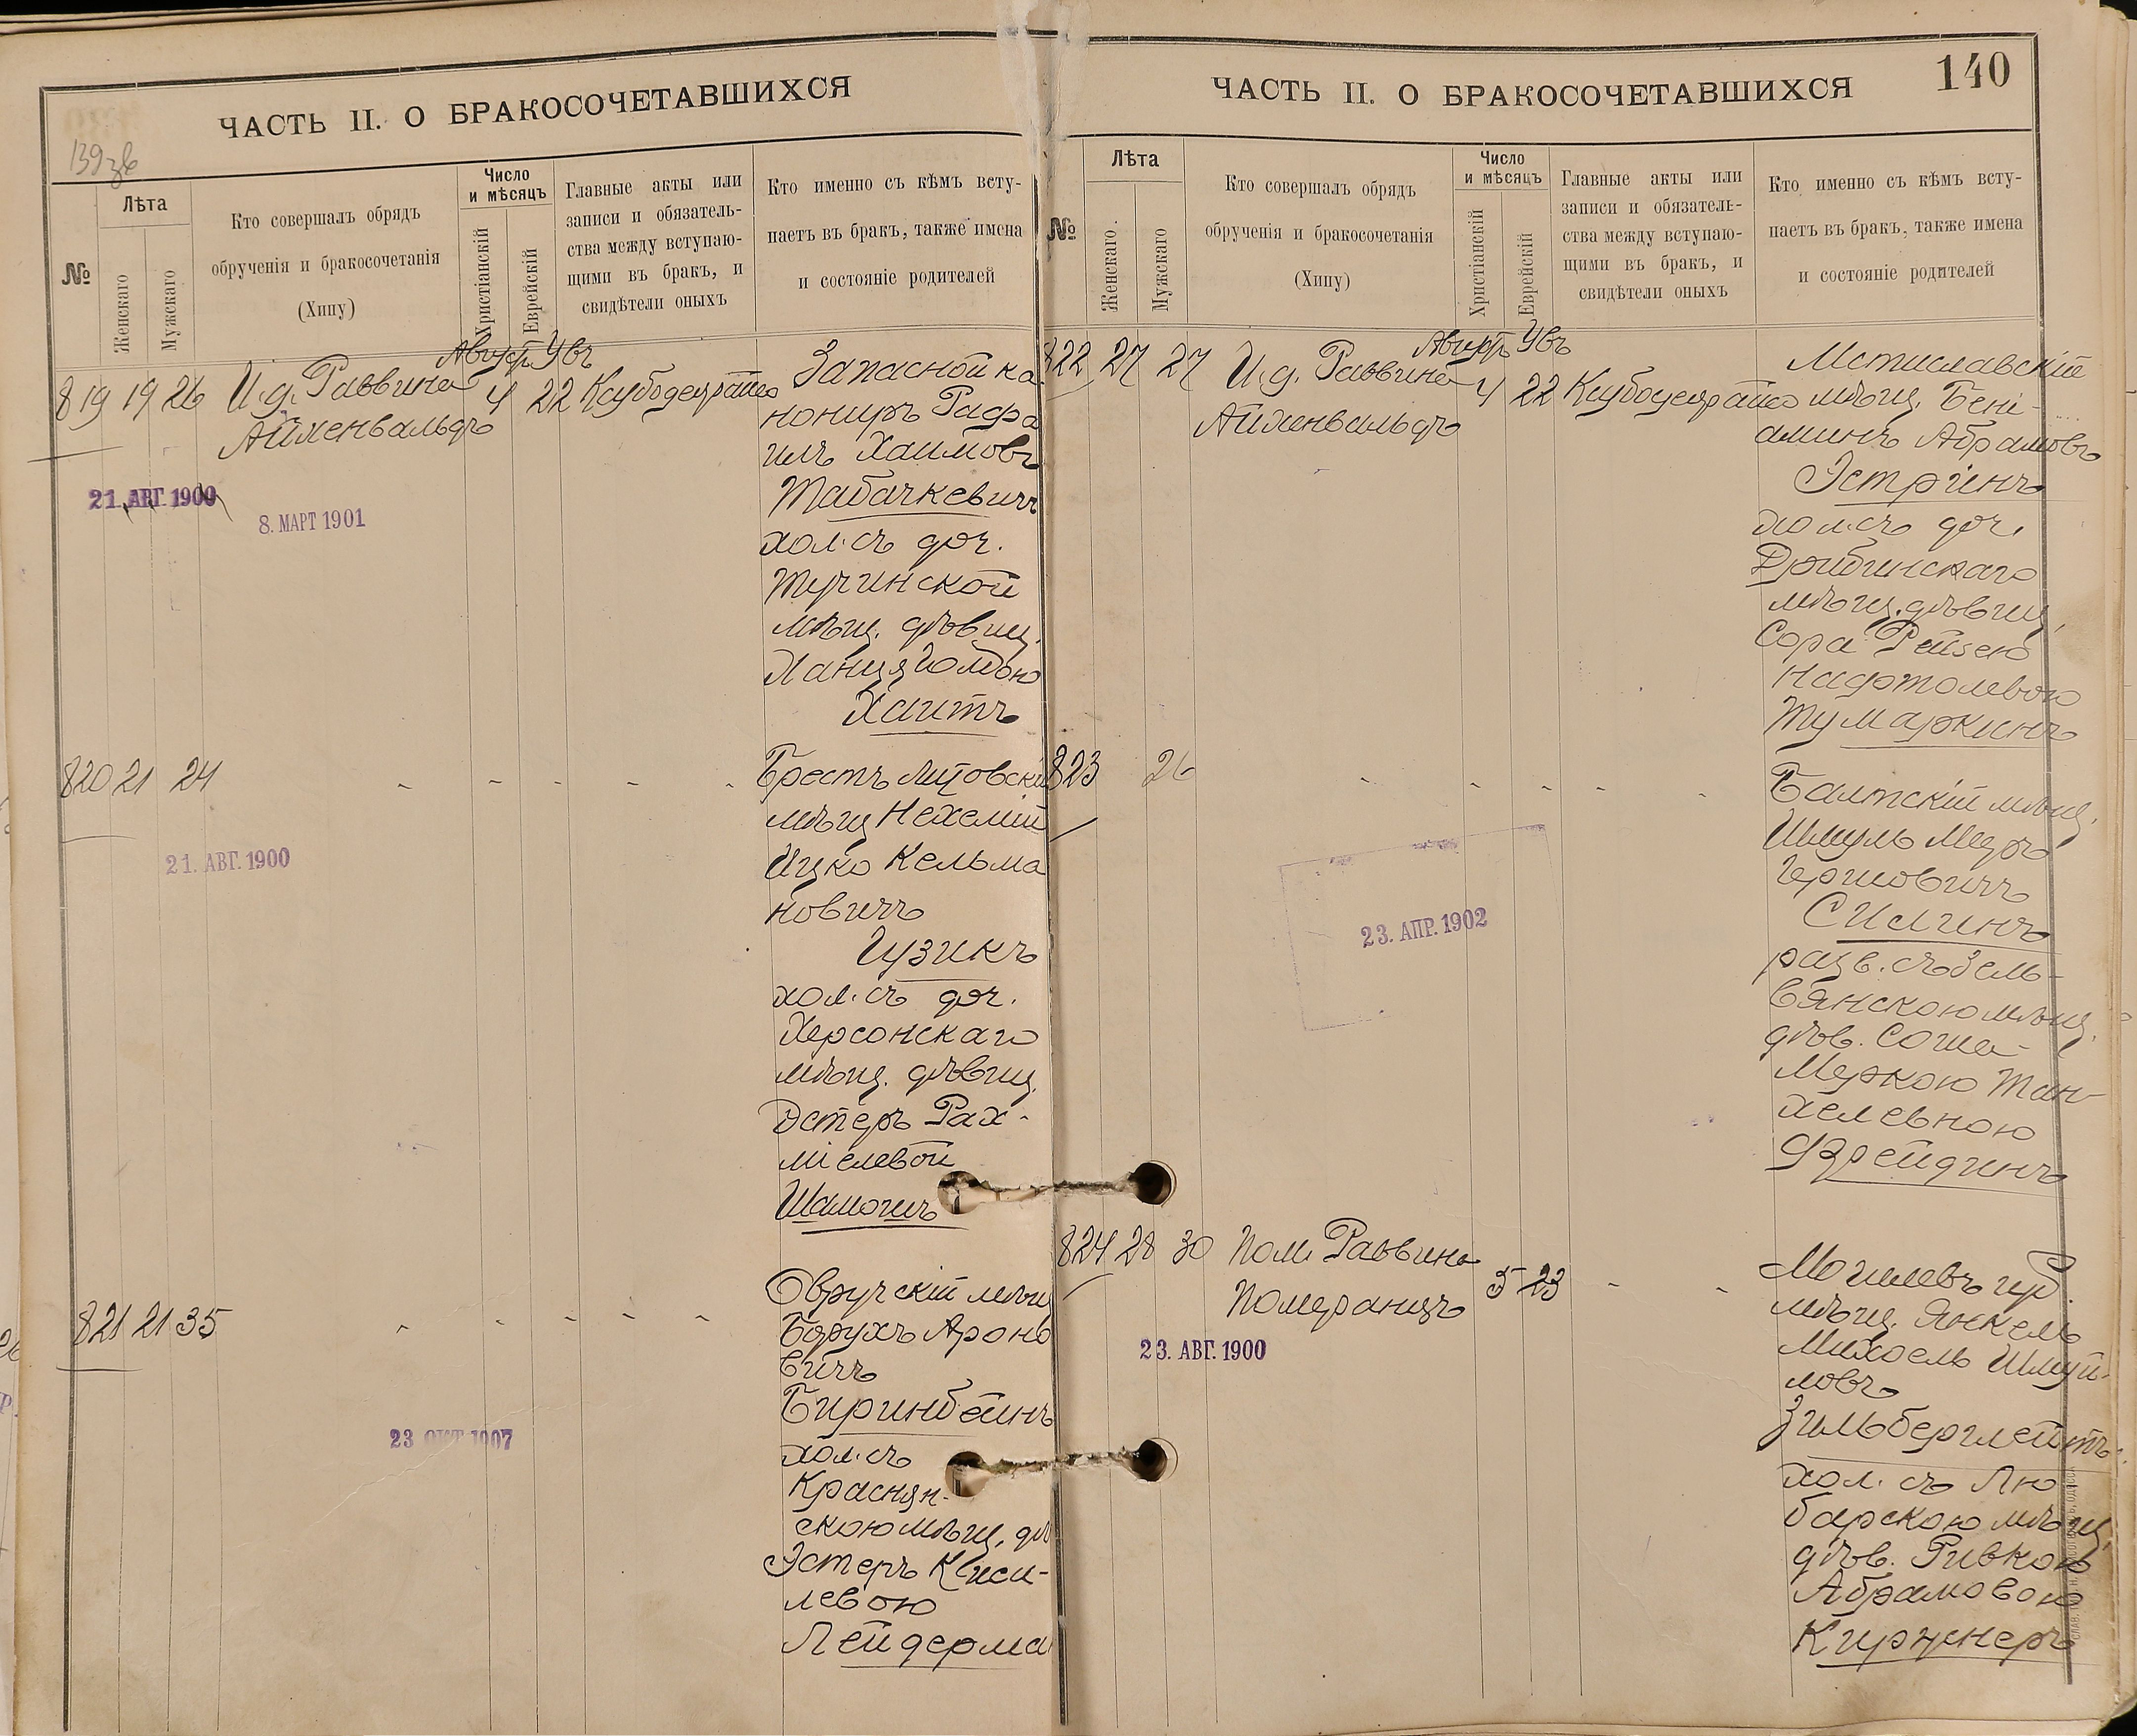 ЧАСТЬ II. О БРАКОСОЧЕТАВШИХСЯ
139 зв
№
Лѣта
Женскаго
Мужскаго
Кто совершалъ обрядъ
обрученія и бракосочетанія
(Хипу)
Число
и мѣсяцъ
Христіанскій
Еврейскій
Главные акты или
записи и обязатель-
ства между вступаю-
щими въ бракъ, и
свидѣтели оныхъ
Кто именно съ кѣмъ всту-
паетъ въ бракъ, также имена
и состояніе родителей
819 19 26 И.д. Раввина
Айхенвальдъ
Август 4
Увъ 22
21. АВГ. 1900
8. МАРТ 1901
Запасной ка
нониръ Рафа
илъ Хаимовъ
Табачкевичъ
хол. съ доч.
Тучинской
мѣщ. дѣвиц.
Хаитъ
820 21 24
21. АВГ. 1900
Брестъ Литовскій
мѣщ Нехемій
Ицко Кельма
новичъ
Гузикъ
хол. съ доч.
Херсонскаго
мѣщ. дѣвиц.
Эстеръ Рах-
міелевой
821 21 35
23 ОКТ 1907
Овручскій мѣщ
Борухъ Ароно
вичъ
Биринбеинъ
хол. съ
Краснян-
скою мѣщ. дѣ
Эстеръ Киси-
левою
Лейдерма
ЧАСТЬ II. О БРАКОСОЧЕТАВШИХСЯ
140
№
Лѣта
Женскаго
Мужскаго
Кто совершалъ обрядъ
обрученія и бракосочетанія
(Хипу)
Число
и мѣсяцъ
Христіанскій
Еврейскій
Главные акты или
записи и обязатель-
ства между вступаю-
щими въ бракъ, и
свидѣтели оныхъ
Кто именно съ кѣмъ всту-
паетъ въ бракъ, также имена
и состояніе родителей
822 27 27 И.д. Раввина
Айхенвальдъ
Август 4
Увъ 22
Мстиславскій
мѣщ. Бені-
аминъ Абрамовъ
Эстринъ
хол. съ доч.
Дрибинскаго
мѣщ. дѣвиц,
Сора Рейзею
Нафтолевою
Тумаркинъ
823 26
23. АПР. 1902
Балтскій мѣщ.
Шмуль Мееръ
Гершовичъ
Силинъ
разв. съ Зель-
вянскою мѣщ.
дѣв. Соша-
Меркою Тан-
хелевною
Фрейдинъ
824 28 30 Пом. Раввина
Померанцъ
5 23
23. АВГ. 1900
Могилевъ губ.
мѣщ. Янкель
Михоель Шмуй-
ловъ
Зильберглейтъ
хол. съ Лю
барскою мѣщ
дѣв. Ривкою
Абрамовою
Киржнеръ